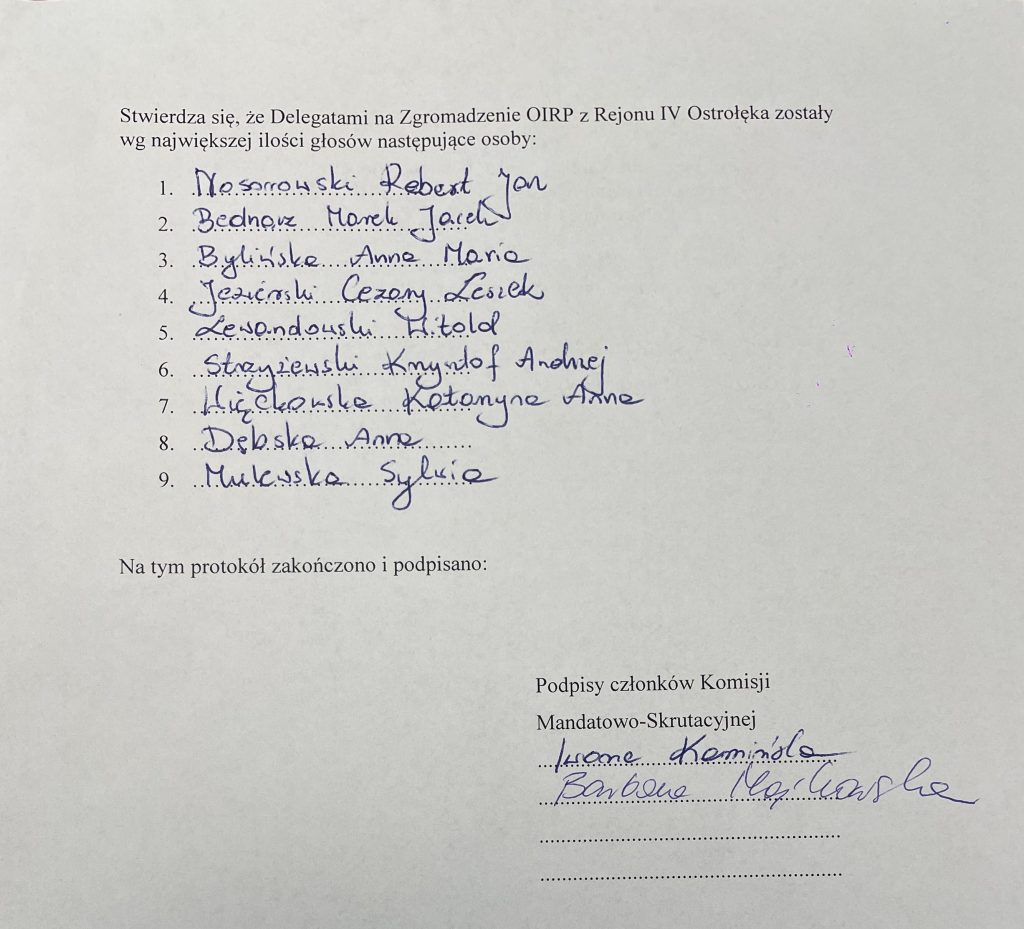 Stwierdza się, że Delegatami na Zgromadzenie OIRP z Rejonu IV Ostrołęka zostały
wg największej ilości głosów następujące osoby:
1. Nosorowski Robert Jan
2. Bednarz Marek Jacek
3. Bylińska Anna Maria
4. Jezierski Cezary Leszek
5. Lewandowski Witold
6. Strzyżewski Krzysztof Andrzej
7. Więckowska Katarzyna Anna
8. Dębska Anna
9. Mulewska Sylwia
Na tym protokół zakończono i podpisano:
Podpisy członków Komisji
Mandatowo-Skrutacyjnej
Iwona Kamińska
Barbara